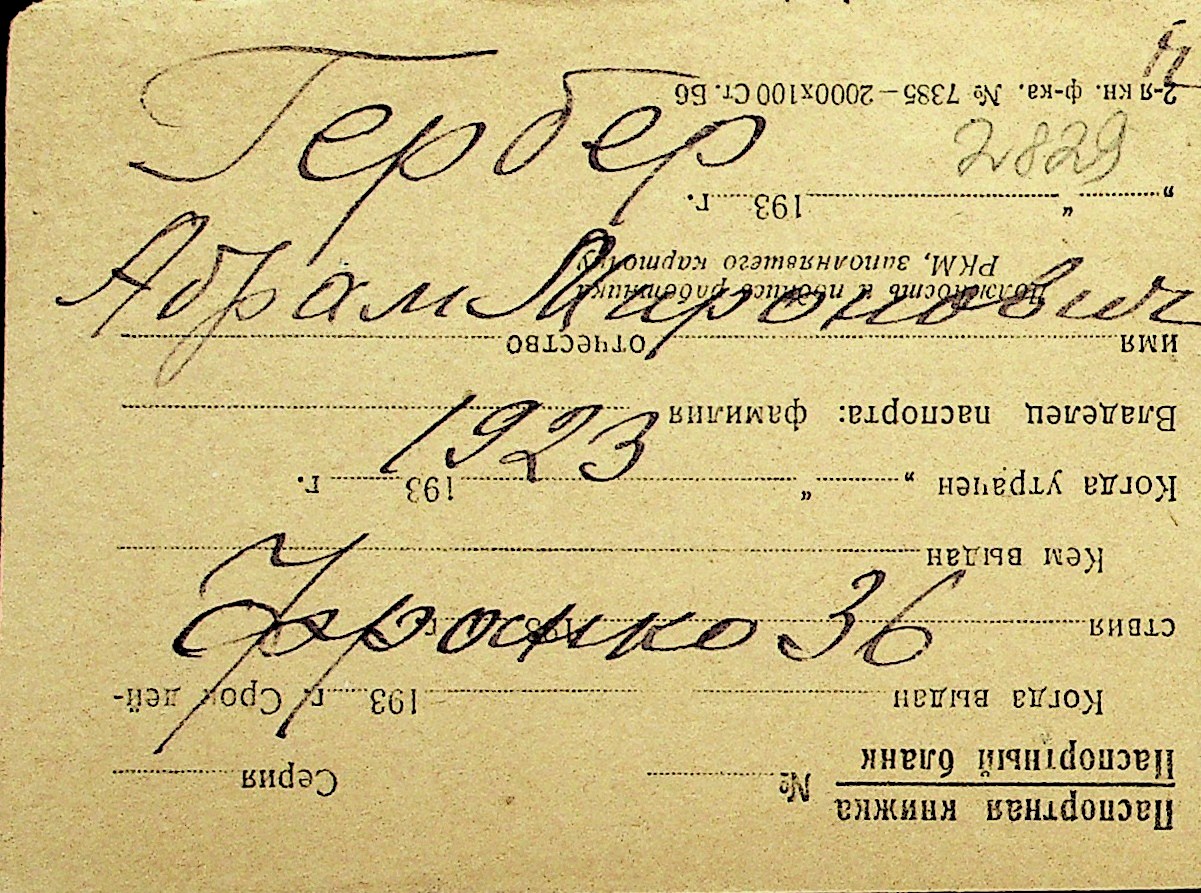 Гербер
2829
Абрам Миронович
1923
Франко 36
Паспортная книжка
Паспортный бланк
№ Серия
Когда выдан 193 г. Срок дей-
ствия 193 г.
Кем выдан
Когда утрачен „ “ 193 г.
Владелец паспорта: фамилия
имя отчество
Должность и подпись работника
РКМ, заполнявшего карточку
„ “ 193 г.
2-я кн. ф-ка. № 7385—2000х100 Ст. Бб